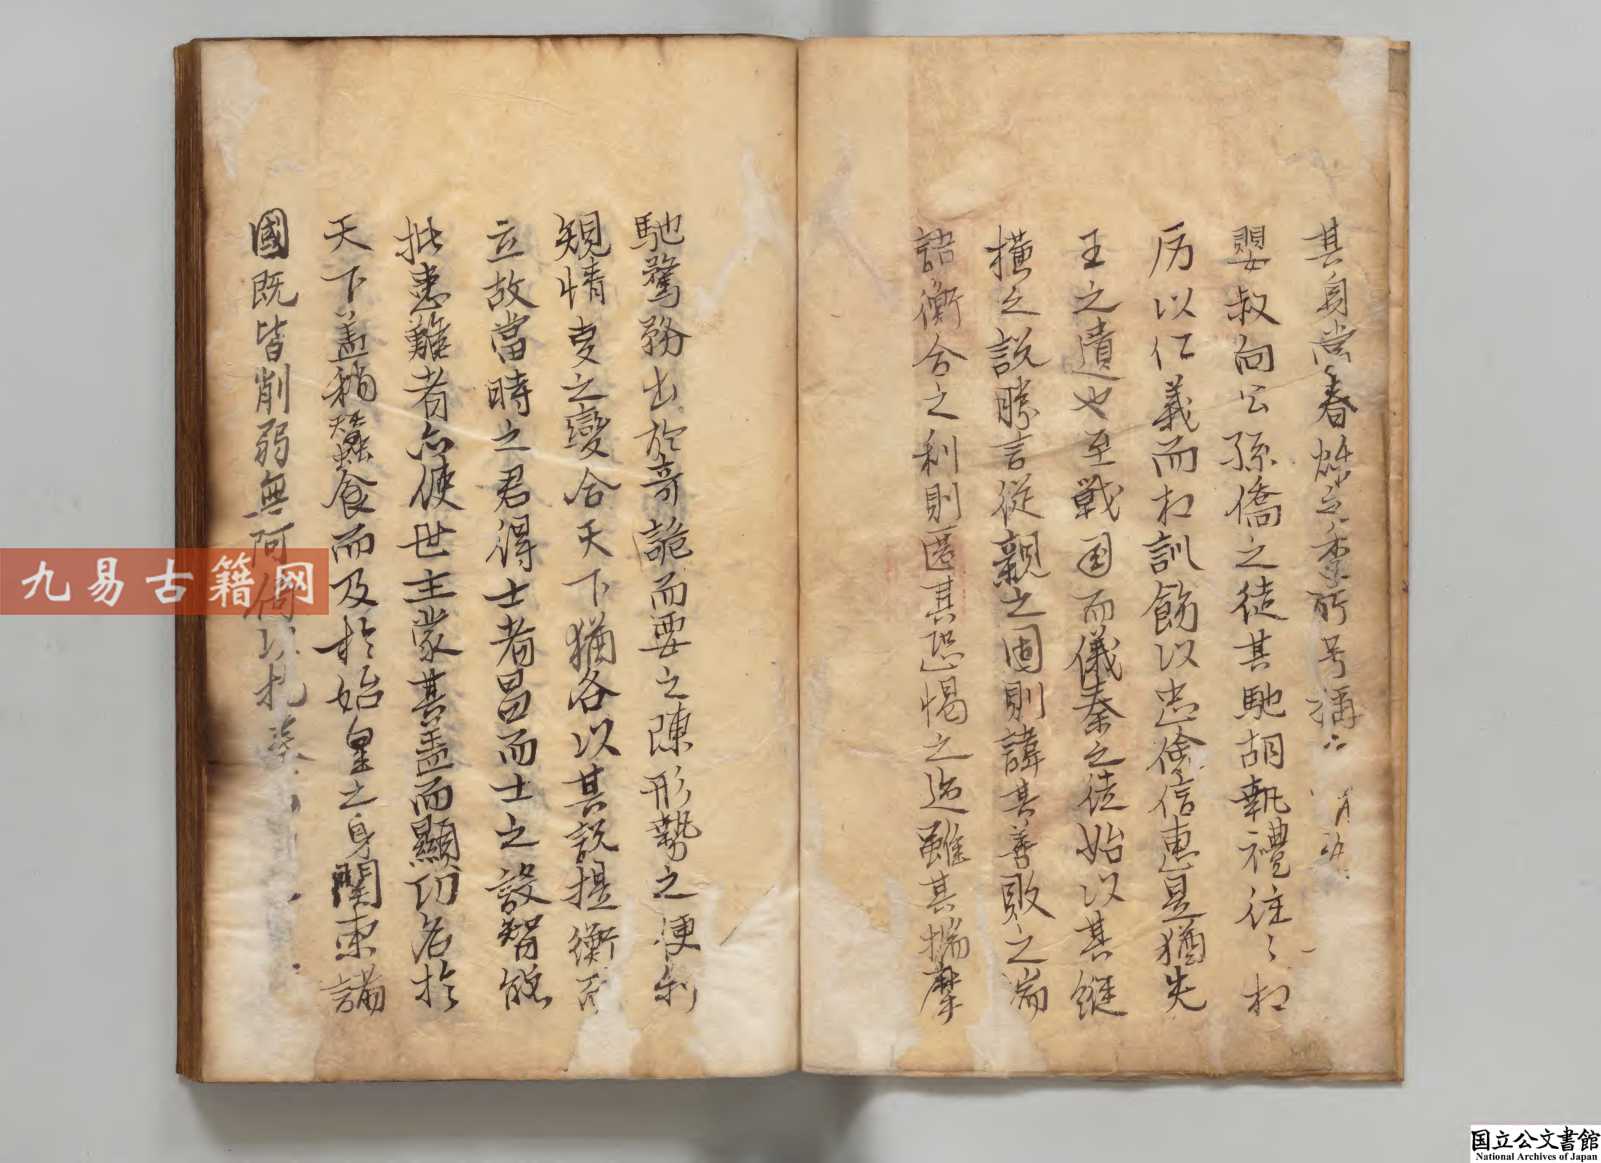 其身当春烁之季所号稱
嬰叔向公孫僑之徒其馳胡執禮往〻相
厉以仁義而相訓飭以忠信惠是猶先
王之遺也至戦国而儀秦之徒始以其縦
橫之說勝言従親之固則諱其善敗之端
語衡合之利則匿其恐愒之迹雖其揣摩
馳騖務出於奇詭而要之陳形勢之便利
規情変之變合天下猶各以其說提衡而
立故當時之君得士者昌而士之設智能
批患難者亦使世主蒙其盖而顯功名於
天下盖稍蠶食而及於始皇之身関東諸
國既皆削弱無何以扎
九易古籍网
国立公文書館
National Archives of Japan